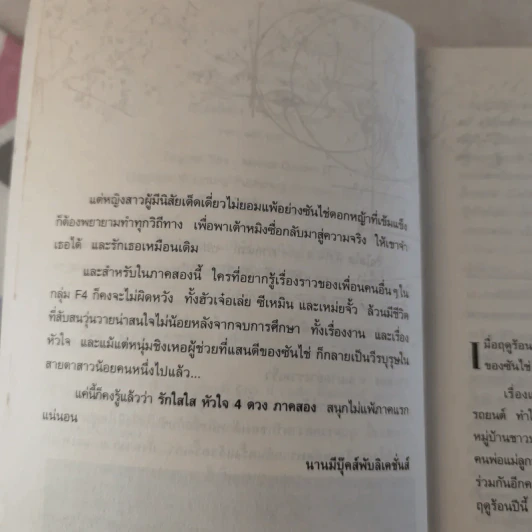 แต่หญิงสาวผู้มีนิสัยเด็ดเดี่ยวไม่ยอมแพ้อย่างซันไช่ดอกหญ้าที่เข้มแข็ง
ก็ต้องพยายามทำทุกวิถีทาง เพื่อพาเต้าหมิงซื่อกลับมาสู่ความจริง ให้เขาจำ
เธอได้ และรักเธอเหมือนเดิม
และสำหรับในภาคสองนี้ ใครที่อยากรู้เรื่องราวของเพื่อนคนอื่นๆ ใน
กลุ่ม F4 ก็คงจะไม่ผิดหวัง ทั้งฮัวเจ๋อเล่ย ซีเหมิน และเหม่ยจั้ว ล้วนมีชีวิต
ที่สับสนวุ่นวายน่าสนใจไม่น้อยหลังจากจบการศึกษา ทั้งเรื่องงาน และเรื่อง
หัวใจ และแม้แต่หนุ่มชิงเหอผู้ช่วยที่แสนดีของซันไช่ ก็กลายเป็นวีรบุรุษใน
สายตาสาวน้อยคนหนึ่งไปแล้ว...
แค่นี้ก็คงรู้แล้วว่า รักใสใส หัวใจ 4 ดวง ภาคสอง สนุกไม่แพ้ภาคแรก
แน่นอน
นานมีบุ๊คส์พับลิเคชั่นส์
เมื่อฤดูร้อน
ของซันไช่
เรื่อง
รถยนต์ ทำ
หมู่บ้านชาว
คนพ่อแม่ลูก
ร่วมกันอีก
ฤดูร้อนปีนี้